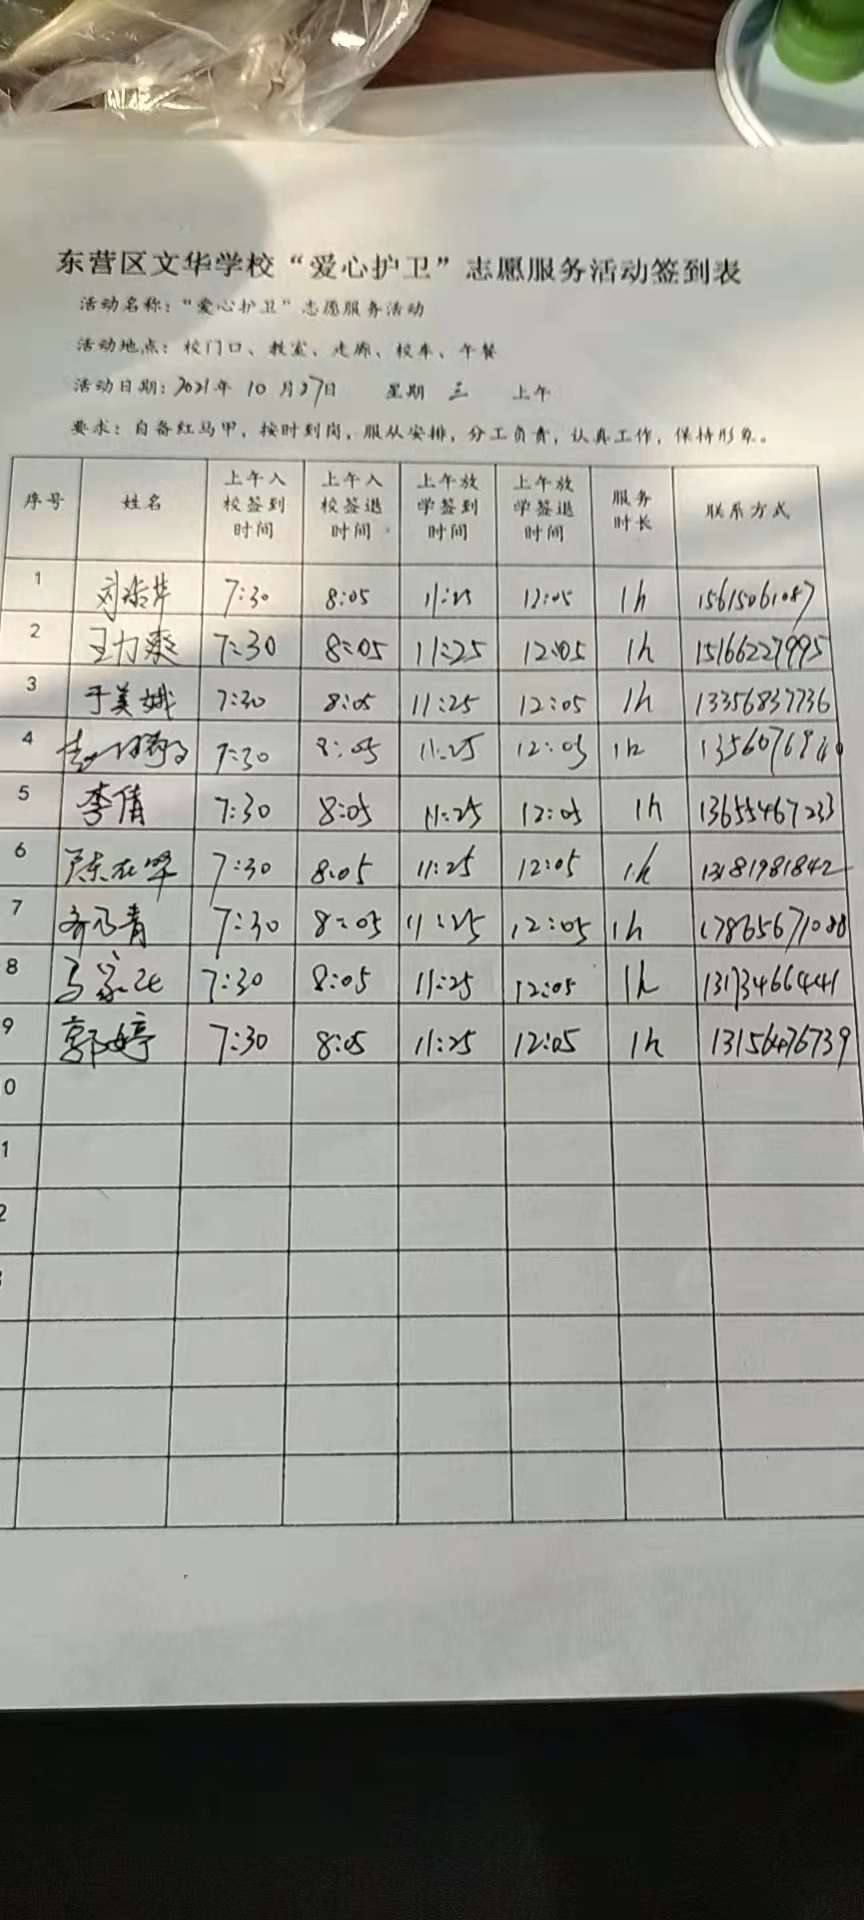 东营区文华学校“爱心护卫”志愿服务活动签到表
活动名称：“爱心护卫”志愿服务活动
活动地点：校门口、教室、走廊、校车、午餐
活动日期：2021年 10 月27日 星期 三 上午
要求：自备红马甲，按时到岗，服从安排，分工负责，认真工作，保持形象。
序号 姓名 上午入校签到时间 上午入校签退时间 上午放学签到时间 上午放学签退时间 服务时长 联系方式
1 7:30 8:05 11:25 12:05 1h 15615061087
2 王力爽 7:30 8:05 11:25 12:05 1h 15166227995
3 于美娥 7:30 8:05 11:25 12:05 1h 13356837736
4 7:30 8:05 11:25 12:05 1h
5 李倩 7:30 8:05 11:25 12:05 1h 13655467233
6 7:30 8:05 11:25 12:05 1h 13181981842
7 齐乃青 7:30 8:05 11:25 12:05 1h 17865671088
8 7:30 8:05 11:25 12:05 1h 13173466441
9 郭婷 7:30 8:05 11:25 12:05 1h 13156476739
0
1
2